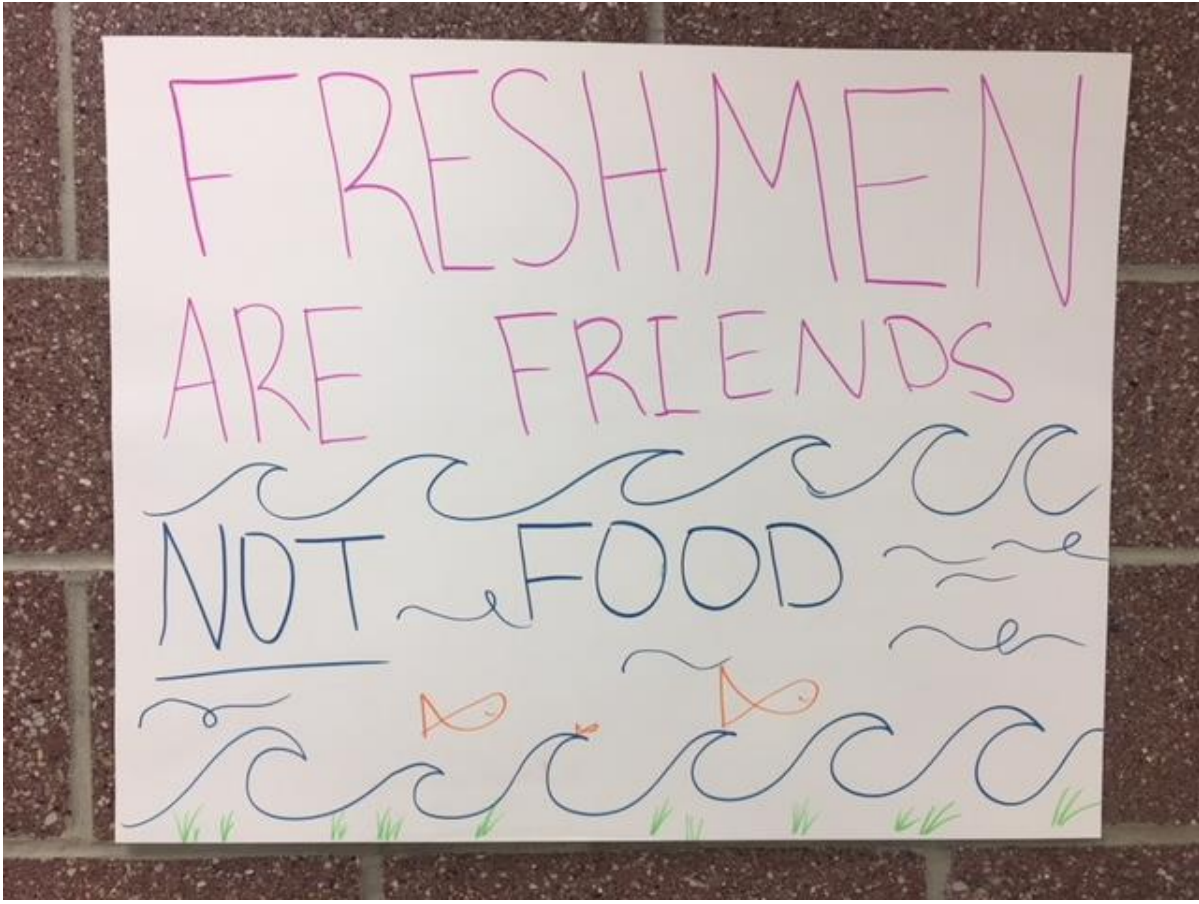 FRESHMEN
ARE FRIENDS
NOT FOOD